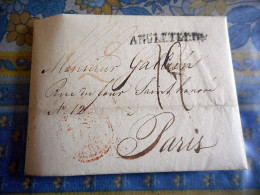 ANGLETERRE
Monsieur
Rue du four Saint honoré
N° 12
Paris